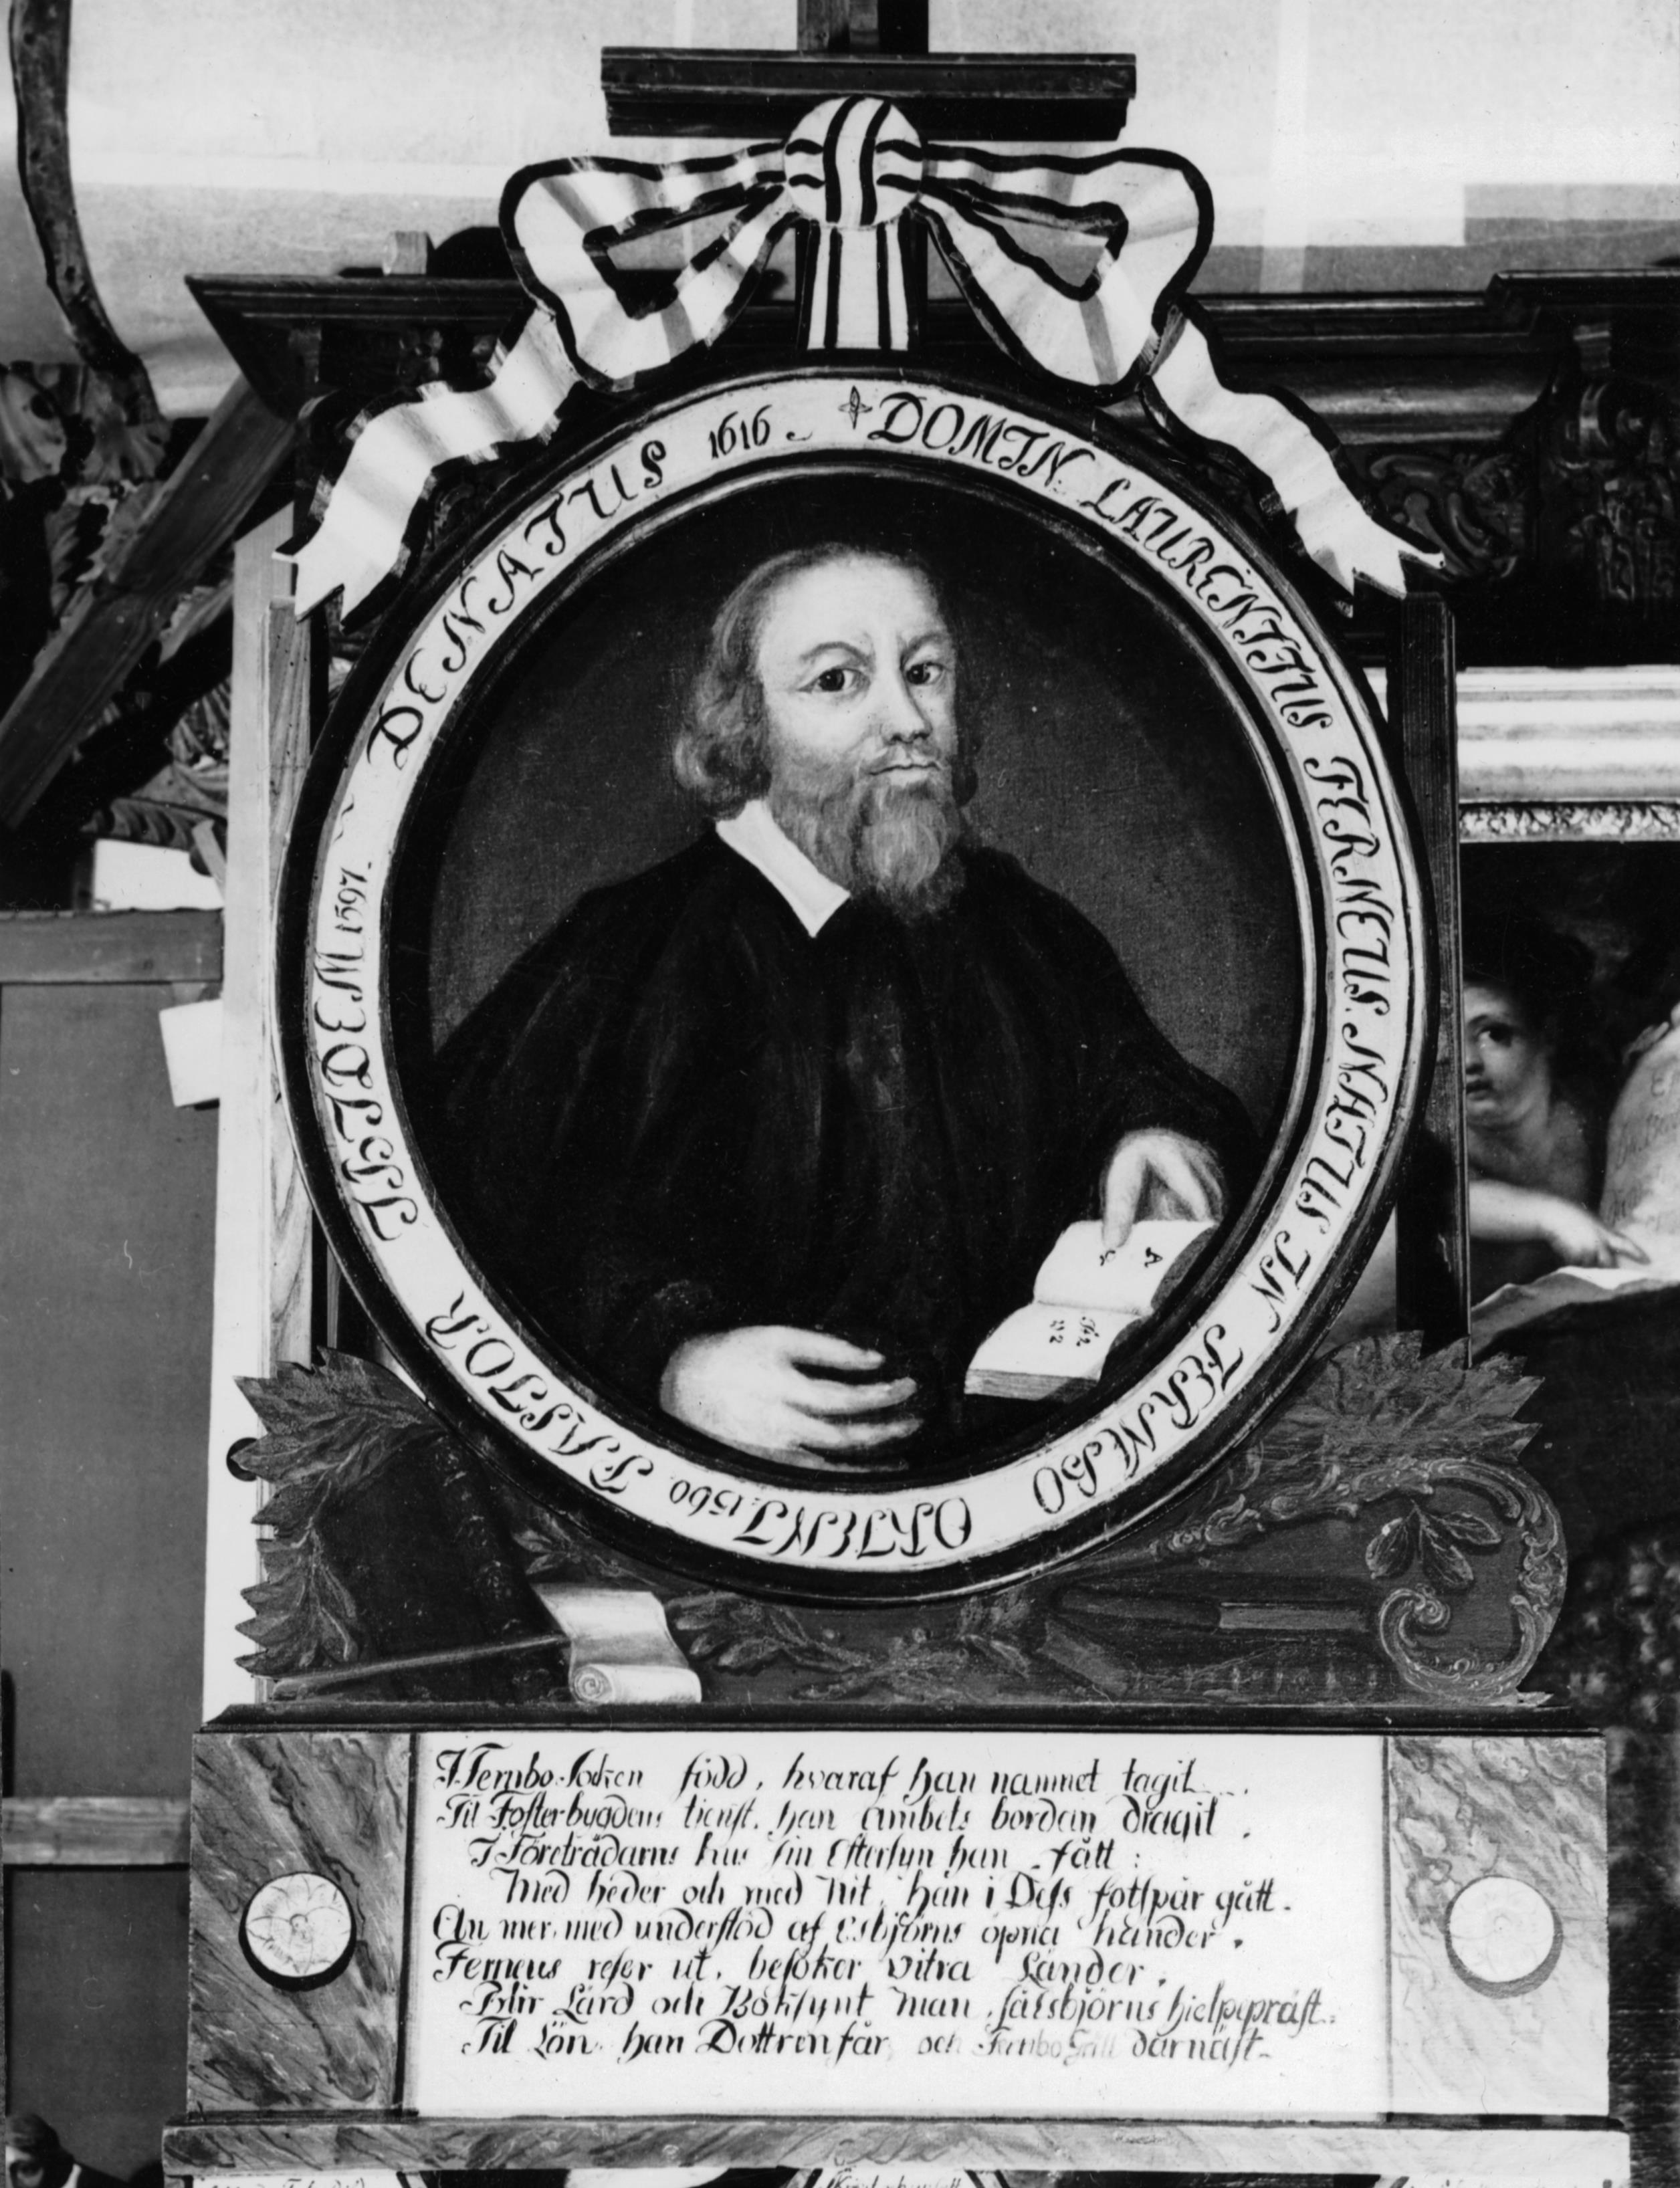 DOMIN: LAURENTIUS FERNEUS. NATUS IN FERNEBO ORIENT. 1560. PASTOR IBIDEM 1597. DENATUS 1616.
I Fernbo Socken född, hvaraf han namnet tagit
Til Fosterbygdens tienst, han ämbets bördan dragit.
I Företrädarns hus sin Eftersyn han fått:
Med heder och med Nit, han i Dess fotspår gått.
Än mer, med understöd af Esbjörns öpna händer,
Ferneus reser ut, besöker vitra Länder,
Blir Lärd och Boksynt man, sär Esbjörns hielpepräst.
Til Lön han Dottren får, och Fernbo Gäll därnäst.